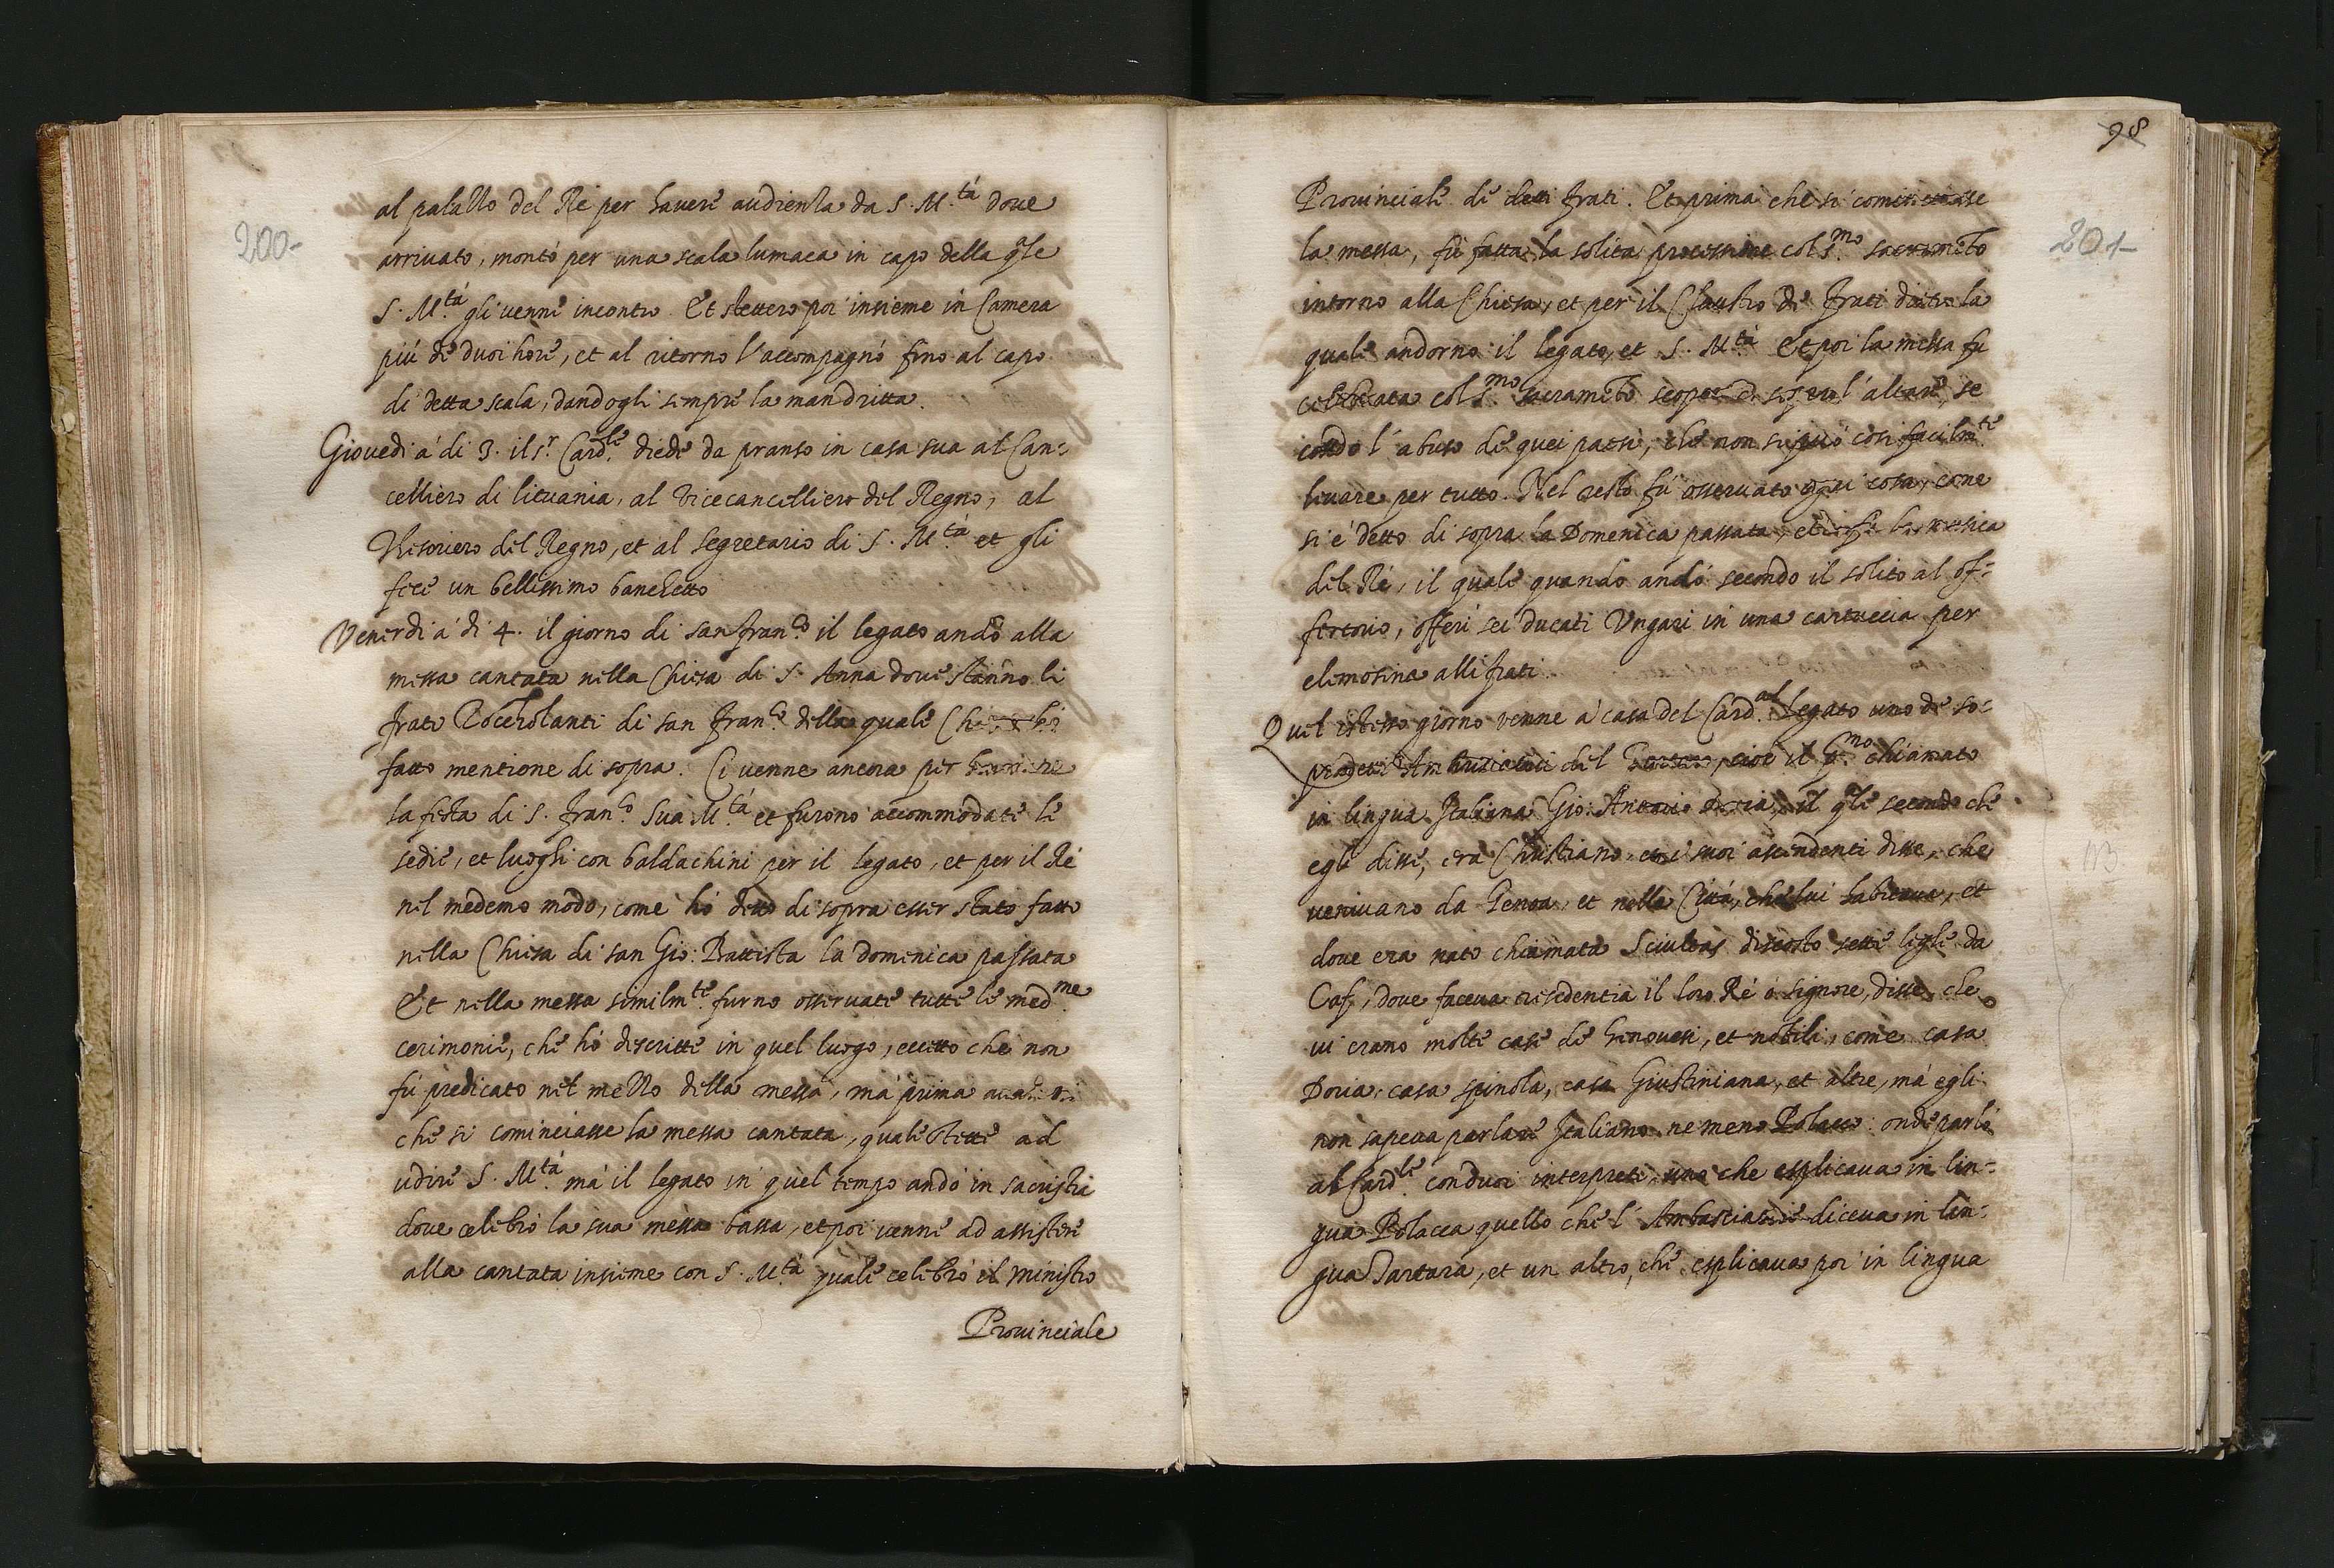 200-
al palazzo del Rè per havere audienza da S. M.tà dove
arrivato, montò per una scala lumaca in capo della qle
S. M.tà gli venne incontro. Et stettero poi insieme in Camera
più de duoi hore, et al ritorno l'accompagnò fino al capo
di detta scala, dandogli sempre la man dritta.
Giovedi à di 3. il s.r Card.le diede da pranso in casa sua al Can=
celliero di lituania, al Vicecancelliero del Regno, al
Thesoriero del Regno, et al segretario di S. M.tà et gli
fece un bellissimo banchetto
Venerdi à di 4. il giorno di san fran.co il legato andò alla
messa cantata nella Chiesa di S. Anna dove stanno li
frati Zoccholanti di san fran.co della quale Chiesa hò
fatto mentione di sopra. Ci venne ancora per
la festa di S. fran.co Sua M.tà et furono accommodate le
sedie, et luoghi con baldachini per il legato, et per il Rè
nel medemo modo, come hò detto di sopra esser stato fatto
nella Chiesa di san Gio: Battista la domenica passata
Et nella messa similm.te furno osservate tutte le med.me
cerimonie, che hò descritte in quel luogo, eccetto che non
fù predicato nel mezzo della messa, mà prima
che si cominciasse la messa cantata, quale stette ad
udire S. M.tà mà il legato in quel tempo andò in sacristia
dove celebrò la sua messa bassa, et poi venne ad assistere
alla cantata insieme con S. M.tà quale celebrò il Ministro
Provinciale
98
201-
Provinciale de detti frati. Et prima che si cominciasse
la messa, fù fatta la solita processione col s.mo sacramēto
intorno alla Chiesa, et per il Claustro de frati dietro la
quale andorno il legato, et S. M.tà Et poi la messa fu
celebrata col s.mo sacramēto scoperto sopra l'altare, se
condo l'abuso de quei paesi, che non si può così facilm.te
levare per tutto. Nel resto fù osservato ogni cosa, come
si è detto di sopra la Domenica passata, et ci fù la musica
del Rè, il quale quando andò secondo il solito al of=
fertorio, offerì sei ducati Ungari in una cartuccia per
elemosina alli frati
Quel istesso giorno venne à casa del Card.al Legato uno de so=
pradetti Ambasciatori del Tartaro, cioè il p.mo chiamato
in lingua Italiana Gio: Antonio Doria, il qle secondo che
egli disse, era Christiano, et i suoi ascendenti disse, che
venivano da Genoa, et nella Città, che lui habitava, et
dove era nato chiamata Sciultas discosto sette leghe da
Caf, dove faceva residentia il loro Rè ò signore, disse, che
vi erano molte case de Genovesi, et nobili, come casa
Doria, casa spinola, casa Giustiniana, et altre, mà egli
non sapeva parlare Italiano ne meno Polacco: onde parlò
al Card.le con duoi interpreti, uno che esplicava in lin=
gua Polacca quello che l'Ambasciatore diceva in lin=
gua Tartara, et un altro, che esplicava poi in lingua